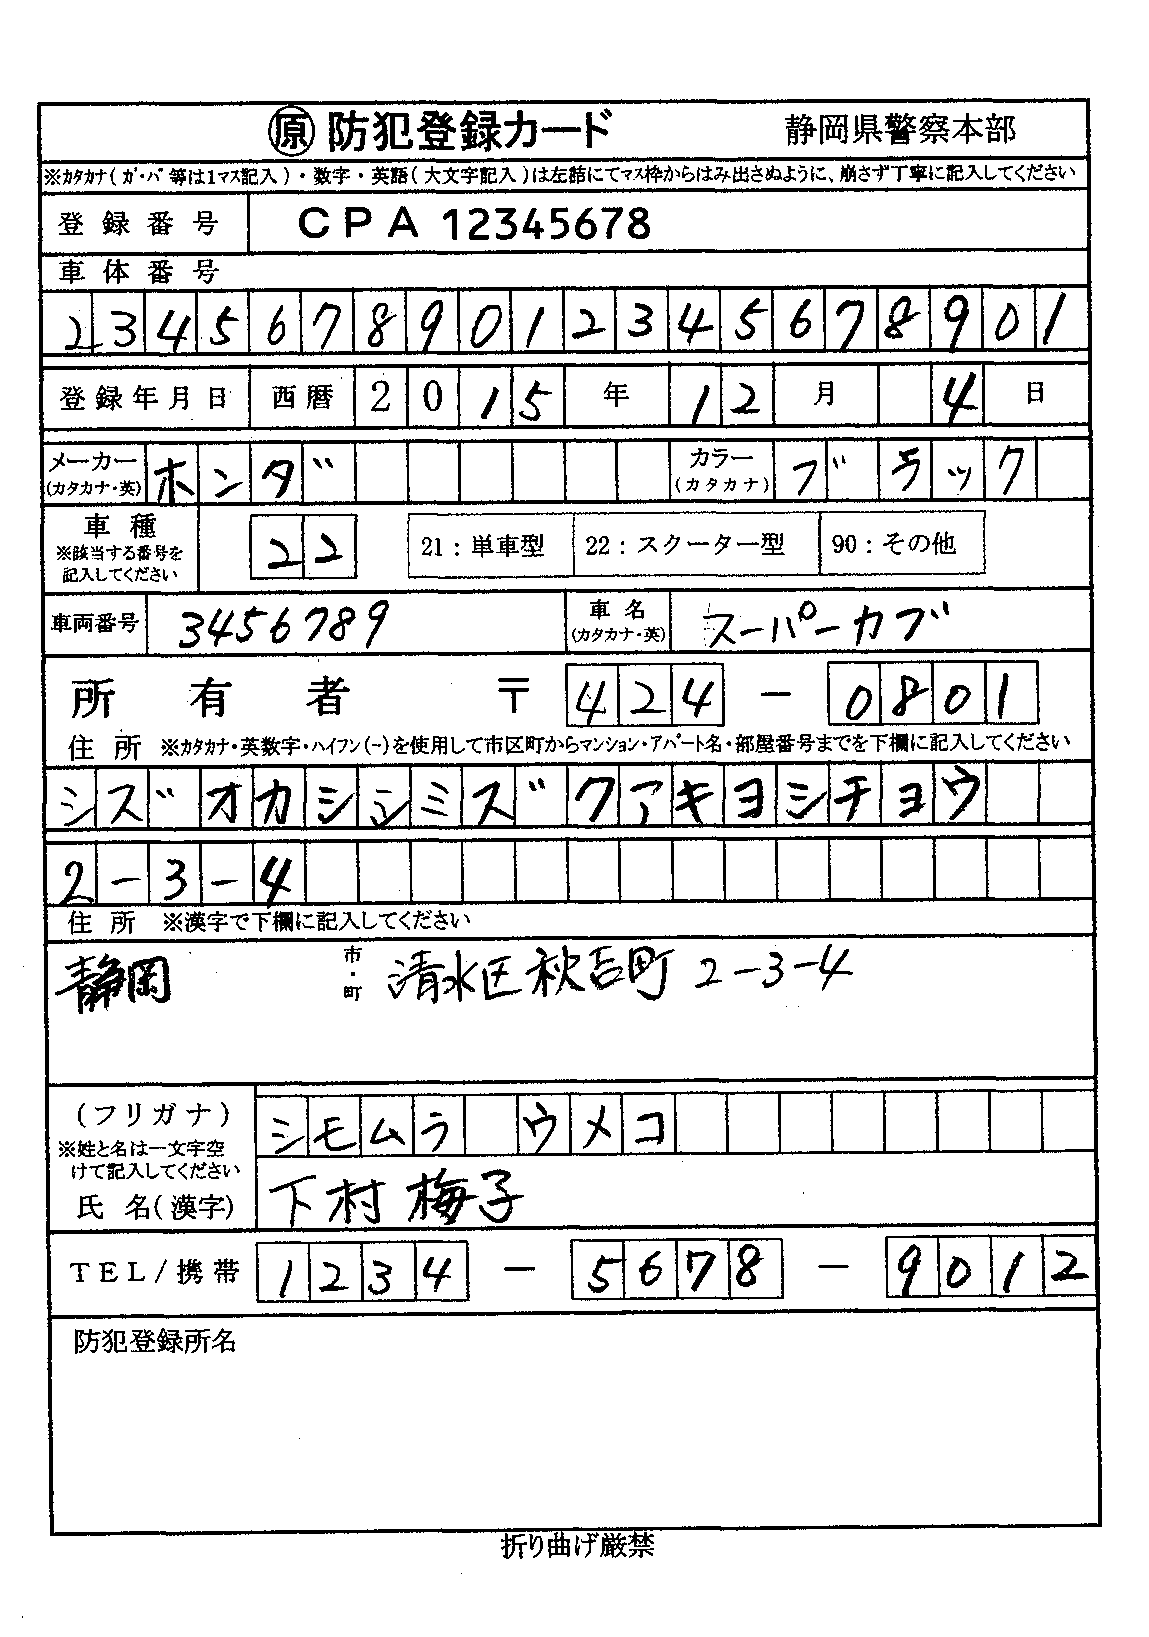 原 防犯登録カード 静岡県警察本部
※カタカナ(ガ・バ等は1マス記入)・数字・英語(大文字記入)は左詰にてマス枠からはみ出さぬように、崩さず丁寧に記入してください
登録番号 CPA 12345678
車体番号
23456789012345678901
登録年月日 西暦 2015 年 12 月 4 日
メーカー (カタカナ・英) ホンダ カラー (カタカナ) ブラック
車種 ※該当する番号を記入してください 22 21:単車型 22:スクーター型 90:その他
車両番号 3456789 車名 (カタカナ・英) スーパーカブ
所有者 〒 424 - 0801
住所 ※カタカナ・英数字・ハイフン(-)を使用して市区町からマンション・アパート名・部屋番号までを下欄に記入してください
シズ゛オカシシミズ゛クアキヨシチョウ
2-3-4
住所 ※漢字で下欄に記入してください
静岡 市・町 清水区秋吉町 2-3-4
(フリガナ) シモムラ ウメコ
※姓と名は一文字空けて記入してください
氏名(漢字) 下村 梅子
TEL/携帯 1234 - 5678 - 9012
防犯登録所名
折り曲げ厳禁